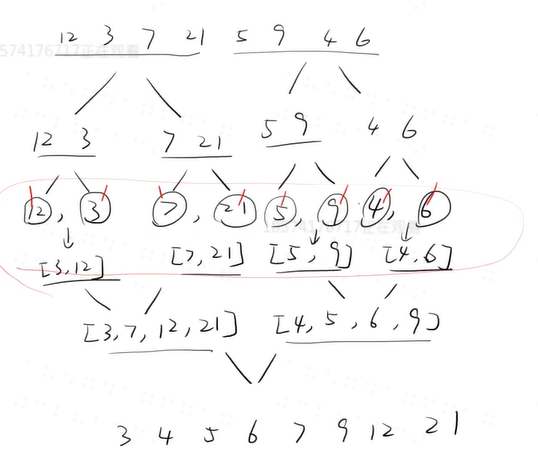 12 3 7 21 5 9 4 6
574176717正在观看
12 3 7 21 5 9 4 6
12, 3 7, 21 5, 9 4, 6
[3,12] [7,21] [5,9] [4,6]
[3,7,12,21] [4,5,6,9]
3 4 5 6 7 9 12 21